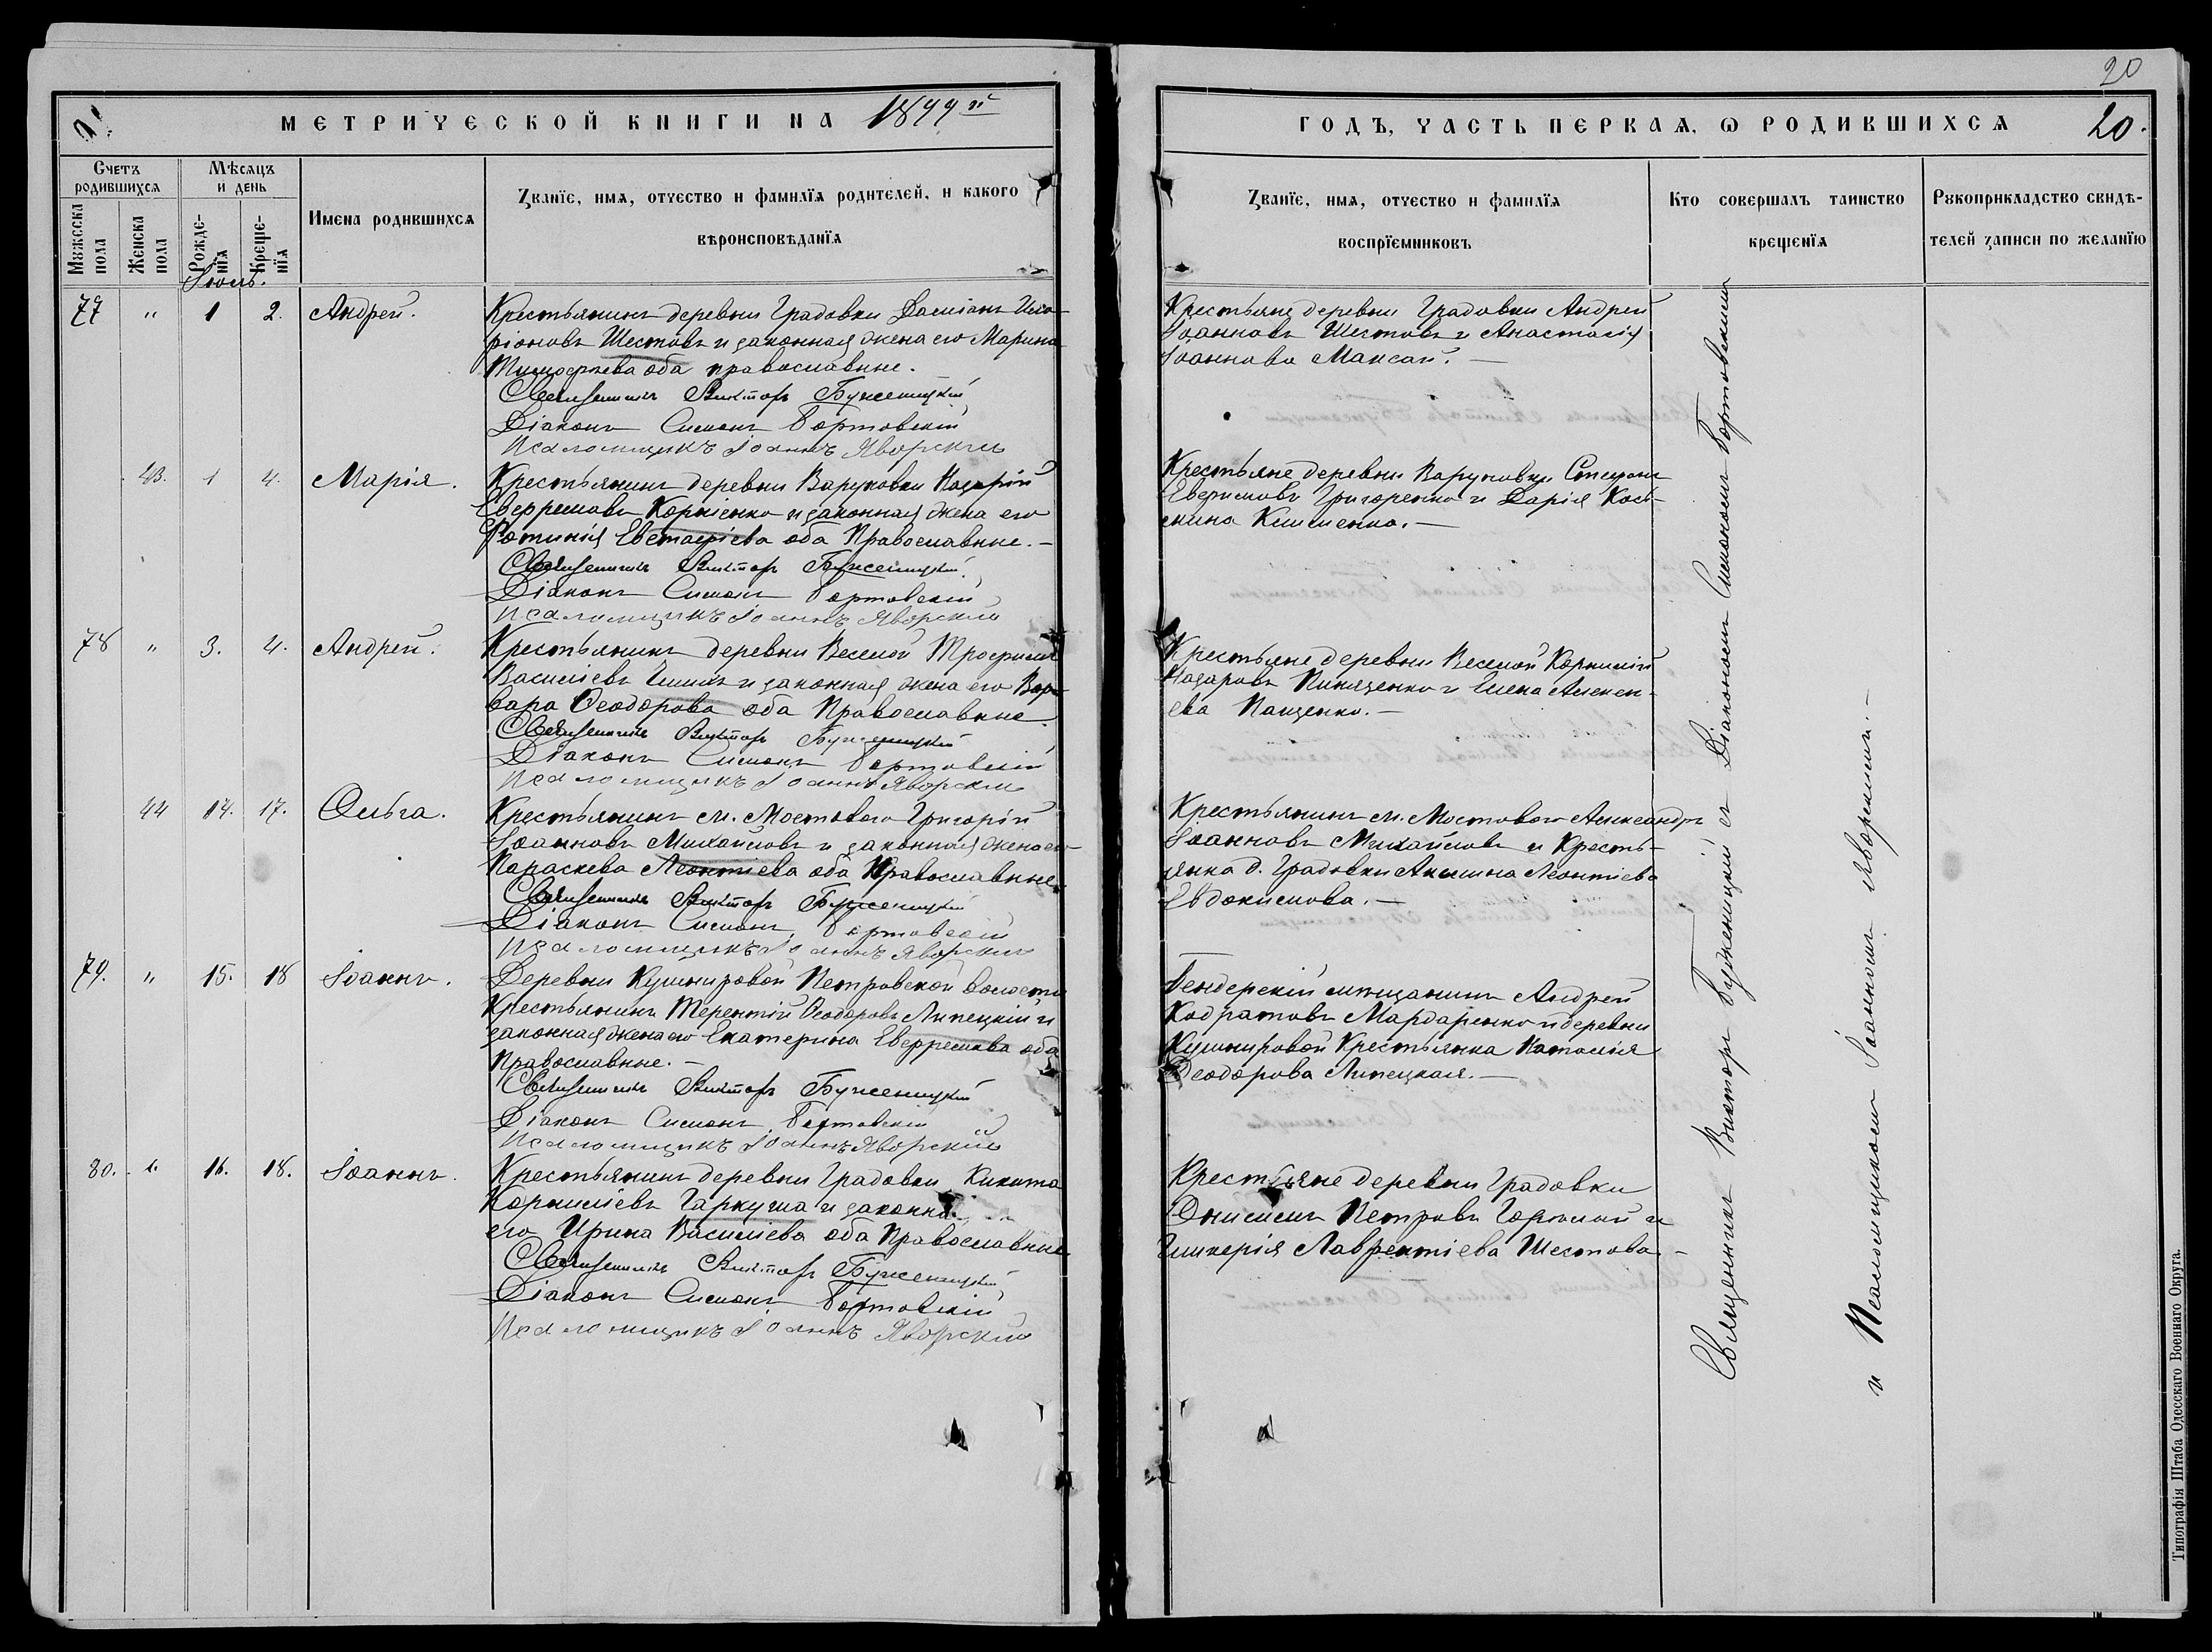 20
МЕТРИЧЕСКОЙ КНИГИ НА 1899й
ГОДЪ, ЧАСТЬ ПЕРВАЯ, Ѡ РОДИВШИХСЯ 20.
Счетъ родившихся
Мужеска пола
Женска пола
Мѣсяцъ и день
Рожденїя
Крещенїя
Имена родившихся
Званїе, имя, отчество и фамилїя родителей, и какого
вѣроисповѣданїя
Званїе, имя, отчество и фамилїя
воспрїемниковъ
Кто совершалъ таинство
крещенїя
Рукоприкладство свидѣ-
телей записи по желанїю
Іюль.
77 " 1 2. Андрей.
Крестьянинъ деревни Градовки Даміанъ Ила-
ріоновъ Шестовъ и законная жена его Марина
Тимофѣева оба православные.
Священникъ Викторъ Буженицкій
Діаконъ Симонъ Бортовскій
Псаломщикъ Іоаннъ Яворскій
Крестьяне деревни Градовки Андрей
Іоанновъ Шестовъ и Анастасія
Іоаннова Максай.
43. 1 4. Марія.
Крестьянинъ деревни Варуновки Назарій
Евфремовъ Корніенко и законная жена его
Фотинія Евстафіева оба Православные.
Священникъ Викторъ Буженицкій
Діаконъ Симонъ Бортовскій
Псаломщикъ Іоаннъ Яворскій
Крестьяне деревни Варуновки Стефанъ
Григоренко и Дарія Кось-
мина Клименко.
78 " 3. 4. Андрей.
Крестьянинъ деревни Веселой Трофимъ
Василіевъ и законная жена его Вар-
вара Ѳеодорова оба Православные
Священникъ Викторъ Буженицкій
Діаконъ Симонъ Бортовскій
Псаломщикъ Іоаннъ Яворскій
Крестьяне деревни Веселой Корнилій
Назаровъ и Елена Алексе-
ева Пащенко.
44 14. 17. Ольга.
Крестьянинъ м. Мостового Григорій
Іоанновъ Михайловъ и законная жена его
Параскева Леонтіева оба Православные
Священникъ Викторъ Буженицкій
Діаконъ Симонъ Бортовскій
Псаломщикъ Іоаннъ Яворскій
Крестьянинъ м. Мостового Александръ
Іоанновъ Михайловъ и Кресть-
янка д. Градовки Акилина Леонтіева
Евдокимова.
79. " 15. 18 Іоаннъ.
Деревни Кушнировой Петровской волости
Крестьянинъ Терентій Ѳеодоровъ Липецкій и
законная жена его Екатерина Евфремова оба
Православные.
Священникъ Викторъ Буженицкій
Діаконъ Симонъ Бортовскій
Псаломщикъ Іоаннъ Яворскій
Бендерскій мѣщанинъ Андрей
Кодратовъ Мардаренко и деревни
Кушнировой Крестьянка Наталія
Ѳеодорова Липецкая.
80. " 16. 18. Іоаннъ.
Крестьянинъ деревни Градовки Никита
Корниліевъ Гаркуша и законна
его Ирина Василіева оба Православные
Священникъ Викторъ Буженицкій
Діаконъ Симонъ Бортовскій
Псаломщикъ Іоаннъ Яворскій
Крестьяне деревни Градовки
Онисимъ Петровъ и
Гликерія Лаврентіева Шестова
Священникъ Викторъ Буженицкій съ Діакономъ Симономъ Бортовскимъ
и Псаломщикомъ Іоанномъ Яворскимъ.
Типографія Штаба Одесскаго Военнаго Округа.